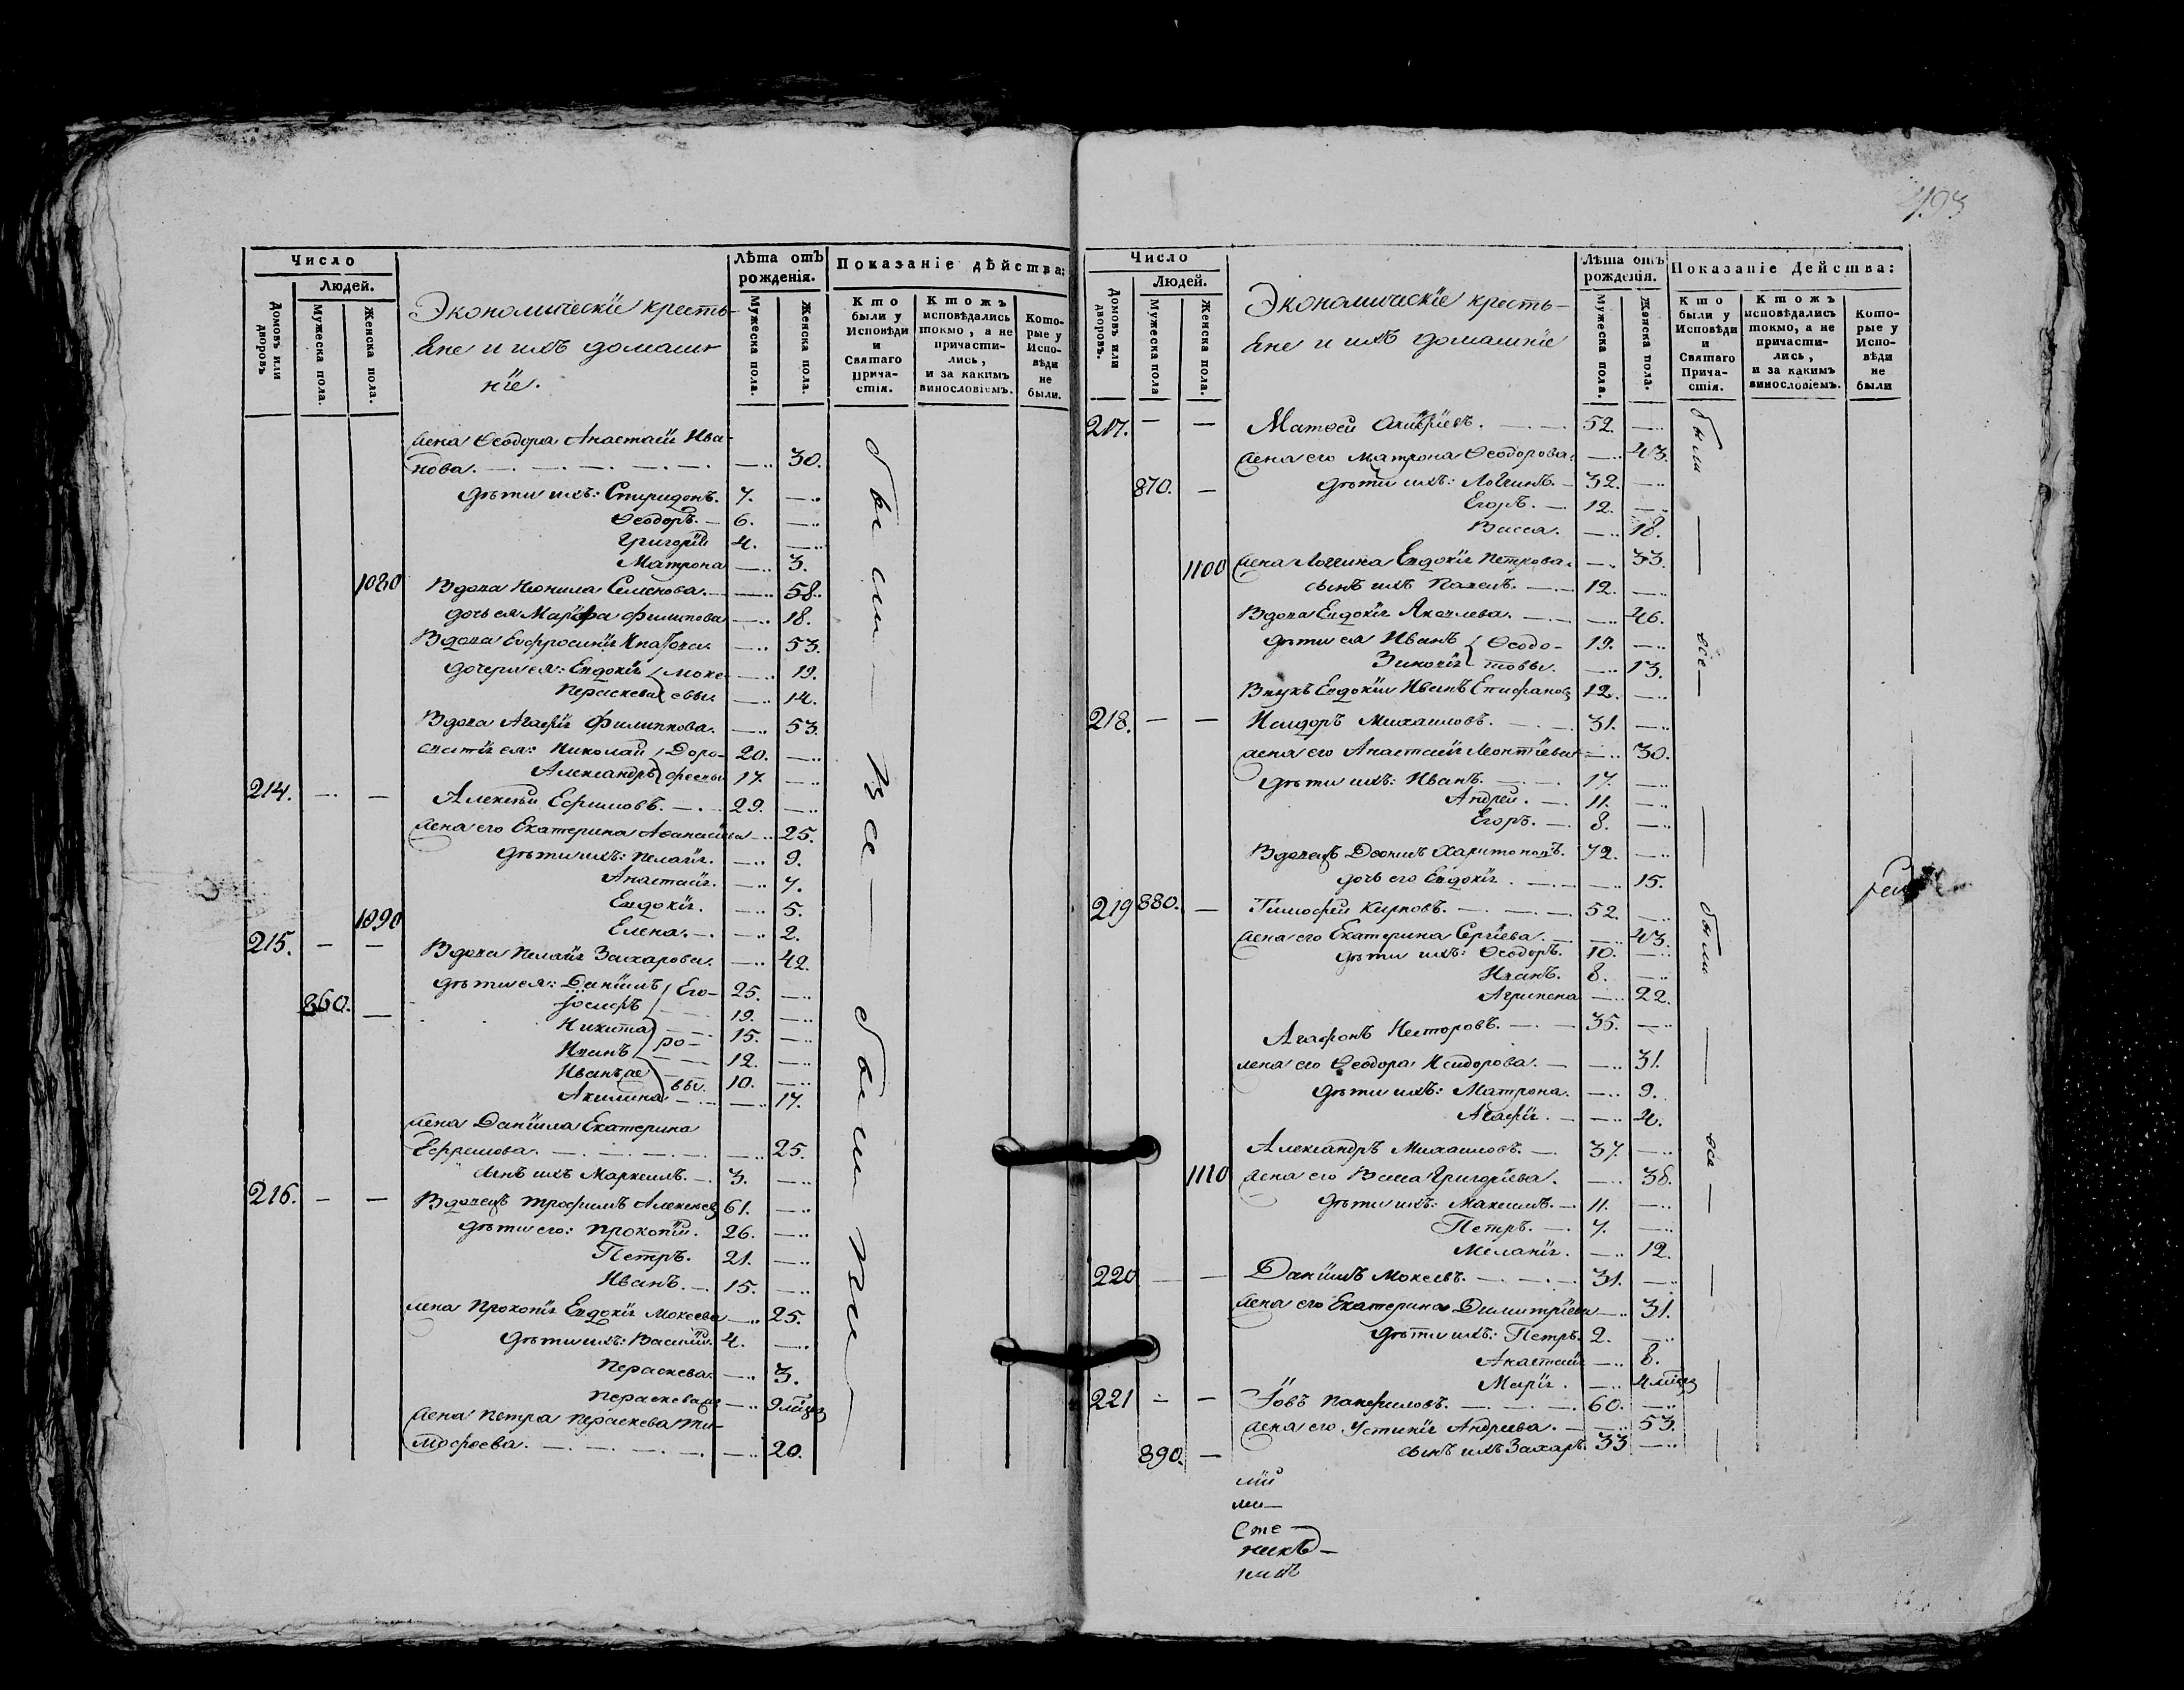 Число
Людей.
Домовъ или дворовъ
Мужеска пола.
Женска пола.
Экономическїе кресть-
яне и ихъ домаш-
нїе.
Лѣта отъ
рожденія.
Мужеска пола.
Женска пола.
Показаніе дѣйства:
Кто были у Исповѣди и Святаго Прича-стія.
Ктожъ исповѣдались токмо, а не причасти-лись, и за какимъ винословіемъ.
Кото-рые у Испо-вѣди не были.
жена Ѳеодора Анастасїя Ива-
нова. — — 30.
дѣти ихъ: Спиридонъ. 7. —
Ѳеодоръ. 6. —
Григорїй 4. —
Матрона — 3.
1080 Вдова Неонила Семенова. — 58.
дочь ея Марфа Филипова — 18.
Вдова Евфросинїя — 53.
дочери ея: Евдокїя Моке- — 19.
Параскева евы — 14.
Вдова Агафїя Филипова. — 53.
ея: Николай Доро- 20. —
Александръ феевы 17. —
214. — — Алексѣй Ефимовъ. 29. —
жена его Екатерина Аѳанасїева — 25.
дѣти ихъ: Пелагїя. — 9.
Анастасїя. — 7.
Евдокїя. — 5.
1090 Елена. — 2.
215. — — Вдова Пелагїя Захарова. — 42.
дѣти ея: Данїилъ Его- 25. —
860. — Іосифъ 19. —
Никита ро- 15. —
Иванъ 12. —
Иванъ же 10. —
Акилина вы. — 17.
жена Данїила Екатерина
Ефремова. — 25.
сынъ ихъ Маркелъ. 3. —
216. — — Вдовецъ Трофимъ Алексѣев 61. —
дѣти его: Прокопїй. 26. —
Петръ. 21. —
Иванъ. 15. —
жена Прокопїя Евдокїя Мокеева — 25.
дѣти ихъ: Василїй. 4. —
Параскева. — 3.
Параскева же — 9 мѣсяц
жена Петра Параскева Ти-
мофеева. — 20.
были — все — были все
493
Число
Людей.
Домовъ или дворовъ.
Мужеска пола
Женска пола.
Экономическїе кресть-
яне и ихъ домашнїе
Лѣта отъ
рожденія.
Мужеска пола.
Женска пола.
Показаніе Действа:
Кто были у Исповѣди и Святаго Прича-стія.
Ктожъ исповѣдались токмо, а не причасти-лись, и за какимъ винословіемъ.
Кото-рые у Испо-вѣди не были
217. — — Матѳей 52. —
жена его Матрона Ѳеодорова. — 43.
870. — дѣти ихъ: Логинъ. 32. —
Егоръ. 12. —
Васса. — 18.
1100 жена Логгина Евдокїя Петрова. — 33.
сынъ ихъ Павелъ. 12. —
Вдова Евдокїя Яковлева. — 46.
дѣти ея Иванъ Ѳеодо- 19. —
Зиновїя товы. — 13.
Внукъ Евдокїи Иванъ Епифановъ 12. —
218. — — Исидоръ Михаиловъ. 31. —
жена его Анастасїя Леонтїева — 30.
дѣти ихъ: Иванъ. 17. —
Андрей. 11. —
Егоръ. 8. —
Вдовецъ Харитоновъ. 72. —
дочь его Евдокїя. — 15.
219 880. — Тимофей Карповъ. 52. —
жена его Екатерина Сергїева. — 43.
дѣти ихъ: Ѳеодоръ. 10. —
Иванъ. 8. —
Агрипена — 22.
Агафонъ Несторовъ. 35. —
жена его Ѳеодора Исидорова. — 31.
дѣти ихъ: Матрона. — 9.
Агафїя. — 4.
Александръ Михаиловъ. 37. —
1110 жена его Васса Григорїева. — 38.
дѣти ихъ: Максимъ. 11. —
Петръ. 7. —
Меланїя. — 12.
220 — — Данїилъ Мокеевъ. 31. —
жена его Екатерина Димитрїева — 31.
дѣти ихъ: Петръ. 2. —
Анастасїя — 8.
Марїя. — 4 мѣсяц
221 — — Іовъ Панфиловъ. 60. —
жена его Устинїя Андреева. — 53.
890. — сынъ ихъ Захаръ. 33 —
были — все — были — все